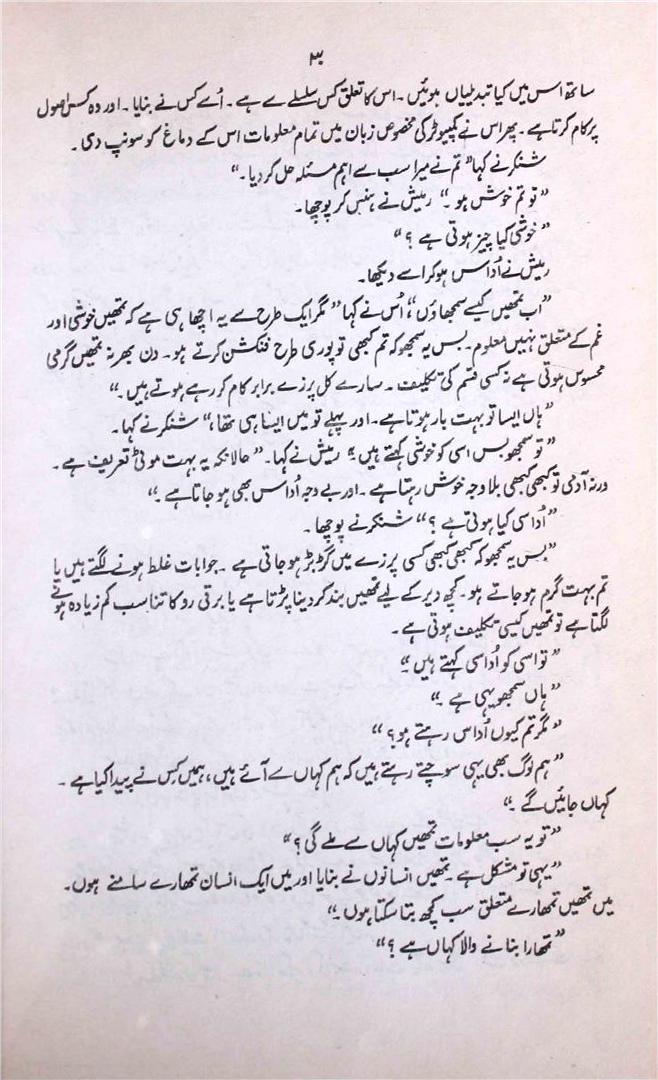 ۳
ساتھ اس میں کیا تبدیلیاں ہوئیں۔ اس کا تعلق کس سلسلے سے ہے۔ اُسے کس نے بنایا۔ اور وہ کس اصول
پر کام کرتا ہے۔ پھر اس نے کمپیوٹر کی مخصوص زبان میں تمام معلومات اس کے دماغ کو سونپ دی۔
شنکر نے کہا "تم نے میرا سب سے اہم مسئلہ حل کر دیا۔"
"تو تم خوش ہو۔" رمیش نے ہنس کر پوچھا۔
"خوشی کیا چیز ہوتی ہے؟"
رمیش نے اُداس ہو کر اسے دیکھا۔
"اب تمھیں کیسے سمجھاؤں"، اُس نے کہا "مگر ایک طرح سے یہ اچھا ہی ہے کہ تمھیں خوشی اور
غم کے متعلق نہیں معلوم۔ بس یہ سمجھو کہ تم کبھی تو پوری طرح فنکشن کرتے ہو۔ دن بھر نہ تمھیں گرمی
محسوس ہوتی ہے نہ کسی قسم کی تکلیف۔ سارے کل پرزے برابر کام کر رہے ہوتے ہیں۔"
"ہاں ایسا تو بہت بار ہوتا ہے۔ اور پہلے تو میں ایسا ہی تھا"، شنکر نے کہا۔
"تو سمجھو بس اسی کو خوشی کہتے ہیں" رمیش نے کہا۔ "حالانکہ یہ بہت موٹی تعریف ہے۔
ورنہ آدمی تو کبھی کبھی بلا وجہ خوش رہتا ہے۔ اور بے وجہ اُداس بھی ہو جاتا ہے۔"
"اُداسی کیا ہوتی ہے؟" شنکر نے پوچھا۔
"بس یہ سمجھو کہ کبھی کبھی کسی پرزے میں گڑبڑ ہو جاتی ہے۔ جوابات غلط ہونے لگتے ہیں یا
تم بہت گرم ہو جاتے ہو۔ کچھ دیر کے لیے تمھیں بند کر دینا پڑتا ہے یا برقی رو کا تناسب کم زیادہ ہونے
لگتا ہے تو تمھیں کیسی تکلیف ہوتی ہے۔
"تو اسی کو اُداسی کہتے ہیں"
"ہاں سمجھو یہی ہے۔"
"مگر تم کیوں اُداس رہتے ہو؟"
"ہم لوگ بھی یہی سوچتے رہتے ہیں کہ ہم کہاں سے آئے ہیں، ہمیں کس نے پیدا کیا ہے۔
کہاں جائیں گے۔"
"تو یہ سب معلومات تمھیں کہاں سے ملے گی؟"
"یہی تو مشکل ہے۔ تمھیں انسانوں نے بنایا اور میں ایک انسان تمھارے سامنے ہوں۔
میں تمھیں تمھارے متعلق سب کچھ بتا سکتا ہوں۔"
"تمھارا بنانے والا کہاں ہے؟"